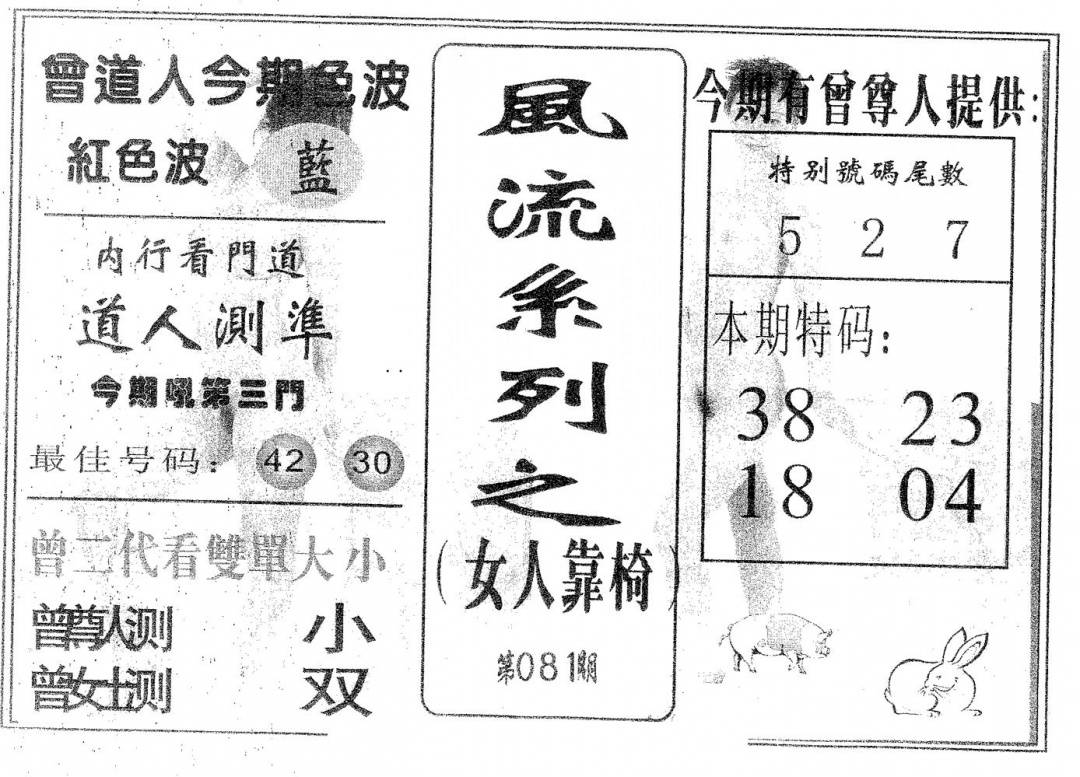 曾道人今期色波
紅色波 藍
内行看門道
道人測準
今期吼第三門
最佳号码: 42 30
曾二代看雙單大小
曾尊人测 小
曾女士测 双
風流系列之
(女人靠椅)
第081期
今期有曾尊人提供:
特别號碼尾數
5 2 7
本期特码:
38 23
18 04